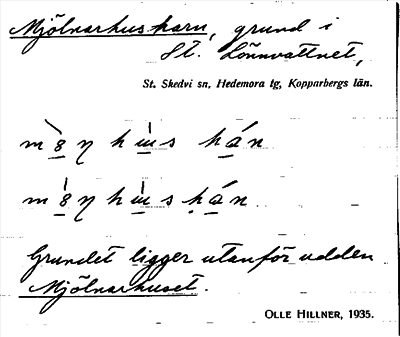 Mjölnarhuskarn, grund i
St. Lönnvattnet,
St. Skedvi sn, Hedemora tg, Kopparbergs län.
Grundet ligger utanför udden
Mjölnarhuset.
OLLE HILLNER, 1935.